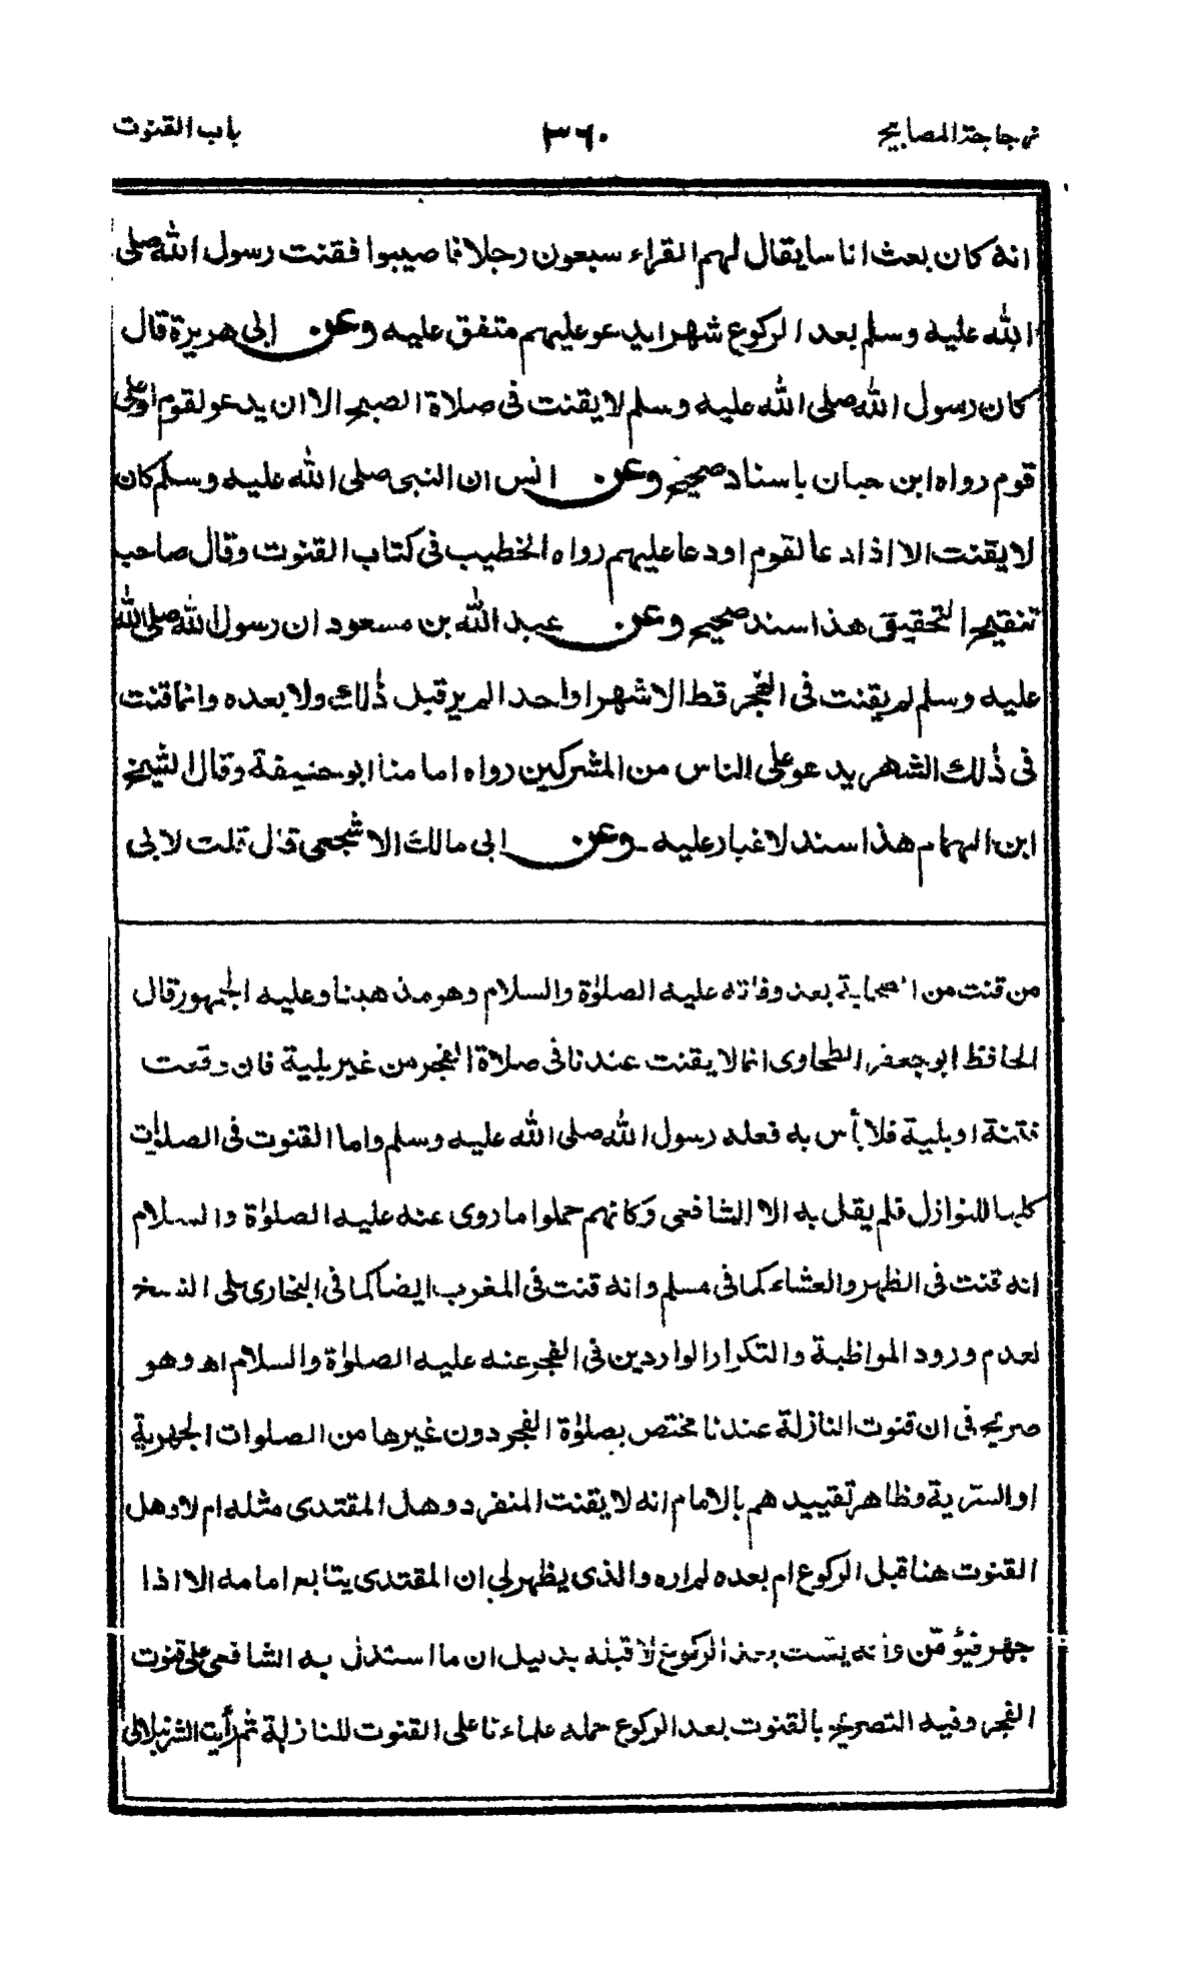 زجاجة المصابيح ٣٦٠ باب القنوت
انه كان بعث اناسا يقال لهم القراء سبعون رجلا فاصيبوا فقنت رسول الله صلى
الله عليه وسلم بعد الركوع شهرا يدعو عليهم متفق عليه وعن ابى هريرة قال
كان رسول الله صلى الله عليه وسلم لا يقنت فى صلاة الصبح الا ان يدعو لقوم او على
قوم رواه ابن حبان باسناد صحيح وعن انس ان النبى صلى الله عليه وسلم كان
لا يقنت الا اذا دعا لقوم او دعا عليهم رواه الخطيب فى كتاب القنوت وقال صاحب
تنقيح التحقيق هذا سند صحيح وعن عبد الله بن مسعود ان رسول الله صلى الله
عليه وسلم لم يقنت فى الفجر قط الا شهرا واحدا لم ير قبل ذٰلك ولا بعده وانما قنت
فى ذٰلك الشهر يدعو على الناس من المشركين رواه امامنا ابو حنيفة وقال الشيخ
ابن الهمام هذا سند لا غبار عليه وعن ابى مالك الاشجعى قال قلت لابى
من قنت من الصحابة بعد وفاته عليه الصلوٰة والسلام وهو مذهبنا وعليه الجمهور قال
الحافظ ابو جعفر الطحاوى انما لا يقنت عندنا فى صلاة الفجر من غير بلية فان وقعت
فتنة او بلية فلا بأس به فعله رسول الله صلى الله عليه وسلم واما القنوت فى الصلوٰت
كلها للنوازل فلم يقل به الا الشافعى وكانهم حملوا ما روى عنه عليه الصلوٰة والسلام
انه قنت فى الظهر والعشاء كما فى مسلم وانه قنت فى المغرب ايضا كما فى البخارى على النسخ
لعدم ورود المواظبة والتكرار الواردين فى الفجر عنه عليه الصلوٰة والسلام اه وهو
صريح فى ان قنوت النازلة عندنا مختص بصلوٰة الفجر دون غيرها من الصلوات الجهرية
او السرية وظاهر تقييدهم بالامام انه لا يقنت المنفرد وهل المقتدى مثله ام لا وهل
القنوت هنا قبل الركوع ام بعده لم اره والذى يظهر لى ان المقتدى يتابع امامه الا اذا
جهر فيؤمن وانه يقنت بعد الركوع لا قبله بدليل ان ما استدل به الشافعى على قنوت
الفجر وفيه التصريح بالقنوت بعد الركوع حمله علماءنا على القنوت للنازلة ثم رأيت الشرنبلالى